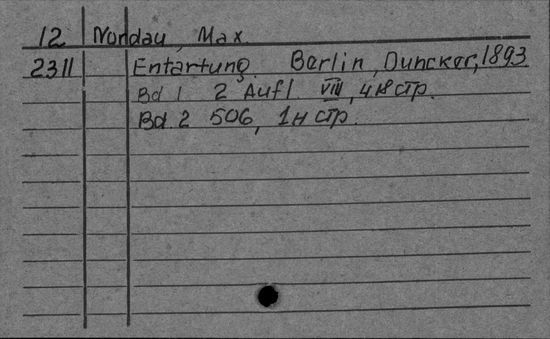 12 Nordau, Max.
2311 Entartung. Berlin, Duncker, 1893
Bd 1 2 Aufl VIII, 418 стр.
Bd. 2 506, 1н стр.